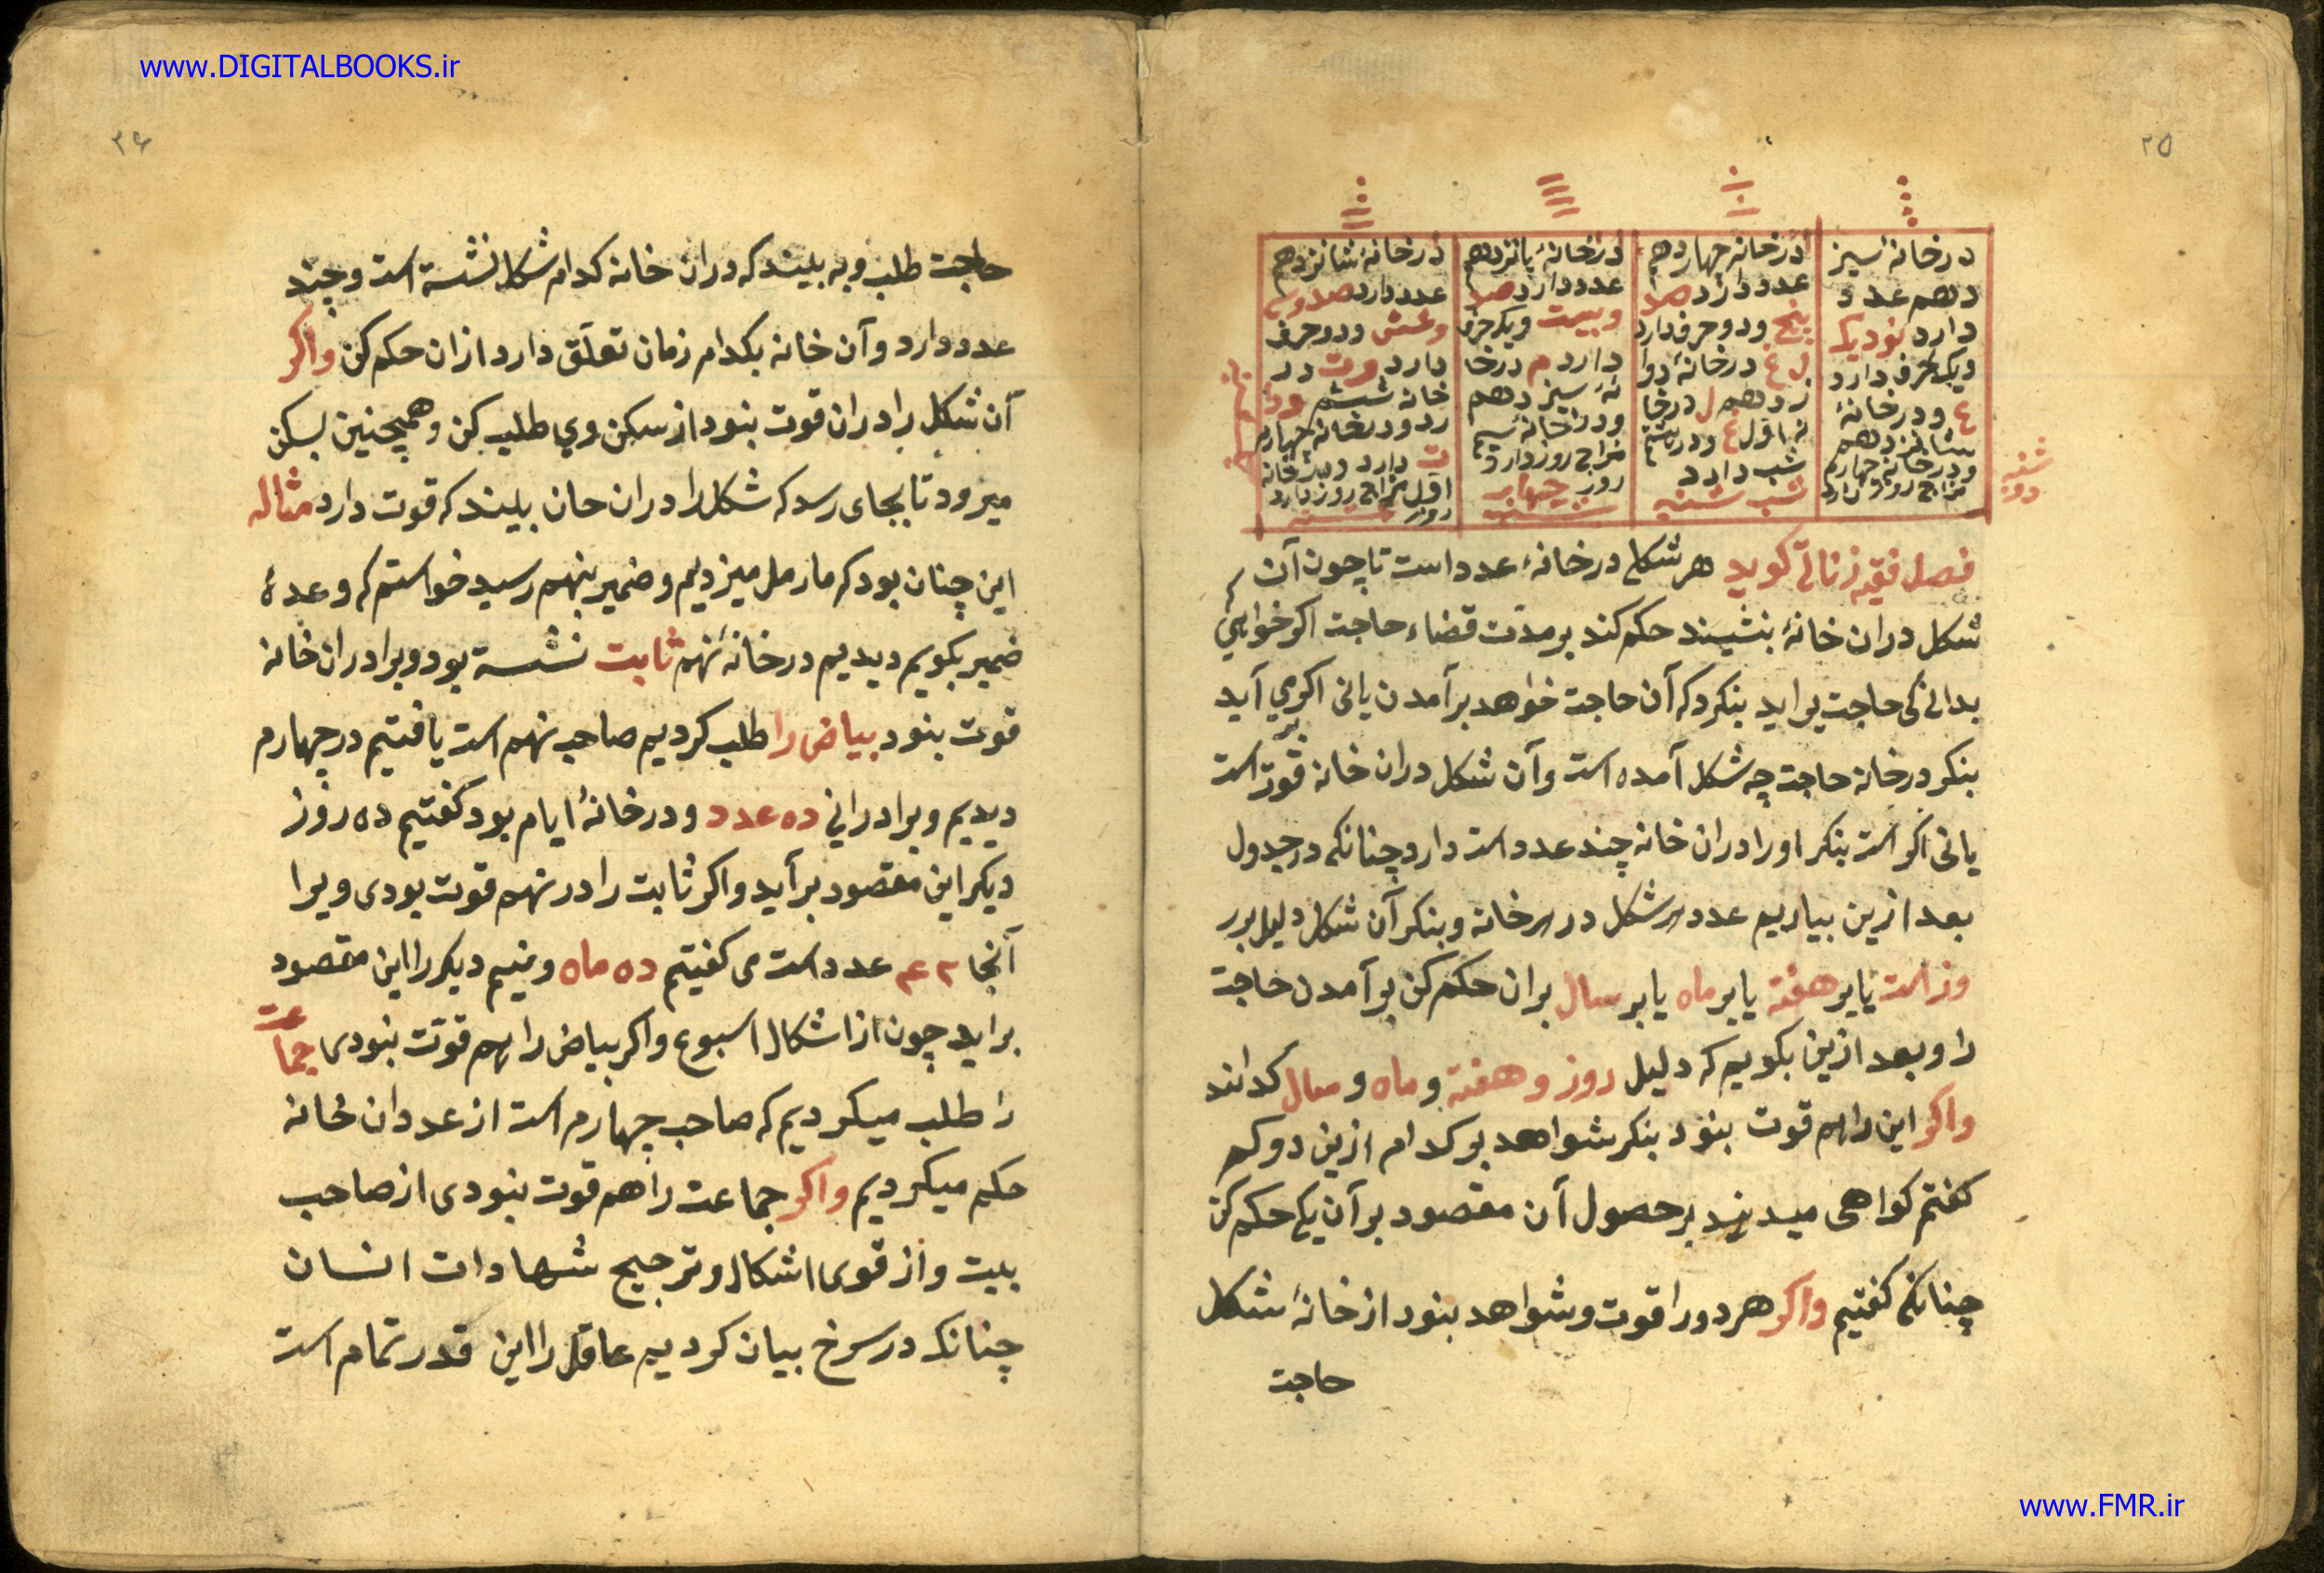 www.DIGITALBOOKS.ir
۲۵
درخانهٔ سیز
دهم عدد
دارد نودیک
ویک حرف دارد
ع ودرخانهٔ
شانزدهم
ودرخانه چهارم
مزاج روز دارد
شنبه
دو
درخانه چهاردهم
عدد دارد صد
پنج ودوحرف دارد
ل ع درخانهٔ دوا
زدهم ل درخا
نه اول ع ودرهشتم
شب دارد
شب شنبه
درخانهٔ پانزدهم
عدد دارد صد
وبیست ویک حرف
دارد م درخا
نهٔ سیزدهم
ودرخانه سیم
مزاج روز دارد
روز چهار
شنبه
درخانهٔ شانزدهم
عدد دارد صدوسی
وشش ودوحرف
دارد در
خانه ششم
ردودرخانه چهارم
ت دارد ودرخانه
اول مزاج روز دارد
روز شنبه
فصل فقیه زناتی کوید هرشکلی درخانهٔ عدد است تاچون آن
شکل دران خانهٔ بنشیند حکم کند برمدت قضاء حاجت اکرخواهی
بدانی کی حاجت براید بنکرد که آن حاجت خواهد برآمدن یانی اکرمی آید
بنکر درخانه حاجت چه شکل آمده است وآن شکل دران خانه قوت است
یانی اکر است بنکر اورا دران خانه چند عدد است دارد چنانکه درجدول
بعد ازین بیاریم عدد هر شکل در هر خانه وبنکر آن شکل دلیل برر
وز است یابر هفته یابر ماه یابر سال بران حکم کن برآمدن حاجت
را وبعد ازین بکوییم که دلیل روز وهفته وماه وسال کدامند
واکر این راهم قوت بنود بنکر شواهد بر کدام ازین دو که
کفتم کواهی میدهند برحصول آن مقصود برآن یکی حکم کن
چنانکه کفتیم واکر هردورا قوت وشواهد بنود از خانهٔ شکل
حاجت
۲۶
حاجت طلب وبه بلیند که دران خانه کدام شکل نشسته است وچند
عدد دارد وآن خانه بکدام زمان تعلّق دارد ازان حکم کن واکر
آن شکل را دران قوت بنود از سکن وی طلب کن وهمچنین بسکن
میرود تابجای رسد که شکل را دران حان بلیند که قوت دارد مثاله
این چنان بود که مارمل میزدیم وضمیر بنهم رسید خواستم که وعدهٔ
ضمیر بکویم دیدیم درخانهٔ نهم ثابت نشسته بود وبرا دران خانه
قوت بنود بیاض را طلب کردیم صاحب نهم است یافتیم درچهارم
دیدیم وبرا درانی ده عدد ودرخانهٔ ایام بود کفتیم ده روز
دیکر این مقصود برآید واکر ثابت را در نهم قوت بودی ویرا
آنجا عدد است می کفتیم ده ماه ونیم دیکر را این مقصود
براید چون از اشکال اسبوع واکر بیاض را هم قوّت بنودی جماعت
را طلب میکردیم که صاحب چهارم است از عدد ان خانه
حکم میکردیم واکر جماعت را هم قوت بنودی از صاحب
بیت واز قوی اشکال وترجیح شهادات انسان
چنانکه درسرخ بیان کردیم عاقل را این قدر تمام است
www.FMR.ir